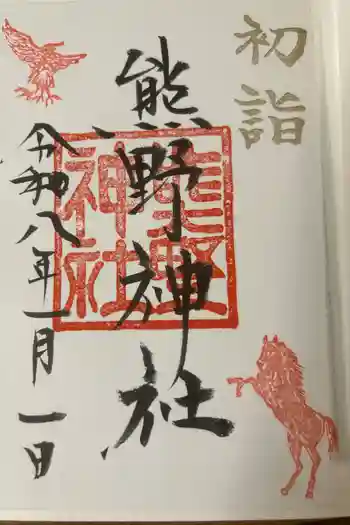 初詣
熊野神社
令和八年一月一日
熊野神社